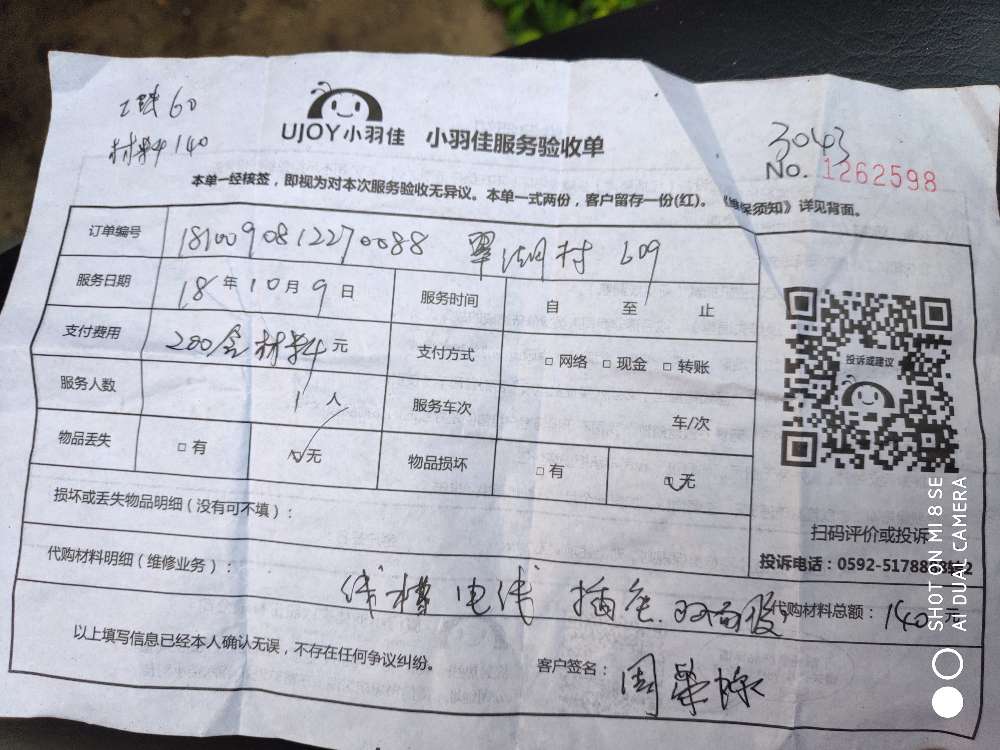 工钱60
材料140
UJOY小羽佳 小羽佳服务验收单
3043
No. 1262598
本单一经核签，即视为对本次服务验收无异议。本单一式两份，客户留存一份(红)。《维保须知》详见背面。
订单编号 1810090812270088 翠湖村 609
服务日期 18年10月9日 服务时间 自 至 止
支付费用 200含材料元 支付方式 □网络 □现金 □转账
服务人数 1人 服务车次 车/次
物品丢失 □有 ☑无 物品损坏 □有 ☑无
损坏或丢失物品明细（没有可不填）：
代购材料明细（维修业务）：
线槽 电线 插座.双面胶 代购材料总额：140元
以上填写信息已经本人确认无误，不存在任何争议纠纷。 客户签名：
投诉或建议
扫码评价或投诉
投诉电话：0592-5178
SHOT ON MI 8 SE
AI DUAL CAMERA